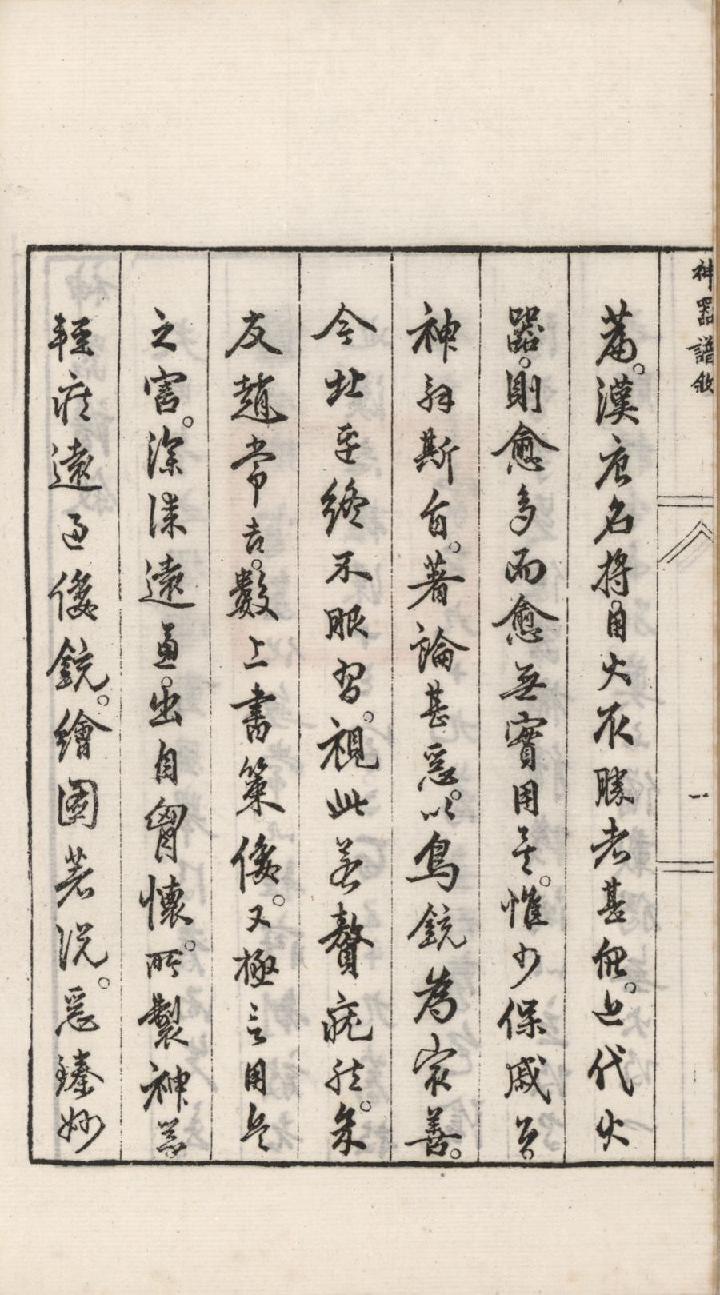 神器譜敘
一
蓄。漢唐名將。自火取勝者甚夥。近代火
器。則愈多而愈無實用矣。惟少保戚公。
神解斯旨。著論甚悉。以鳥銃為最善。
今北邊絡不服習。視此若贅疣然。余
友趙常吉。數上書策倭。又極言用兵
之害。深謀遠慮。出自胸懷。所製神器。
輕疾遠過倭銃。繪圖著說。悉臻妙